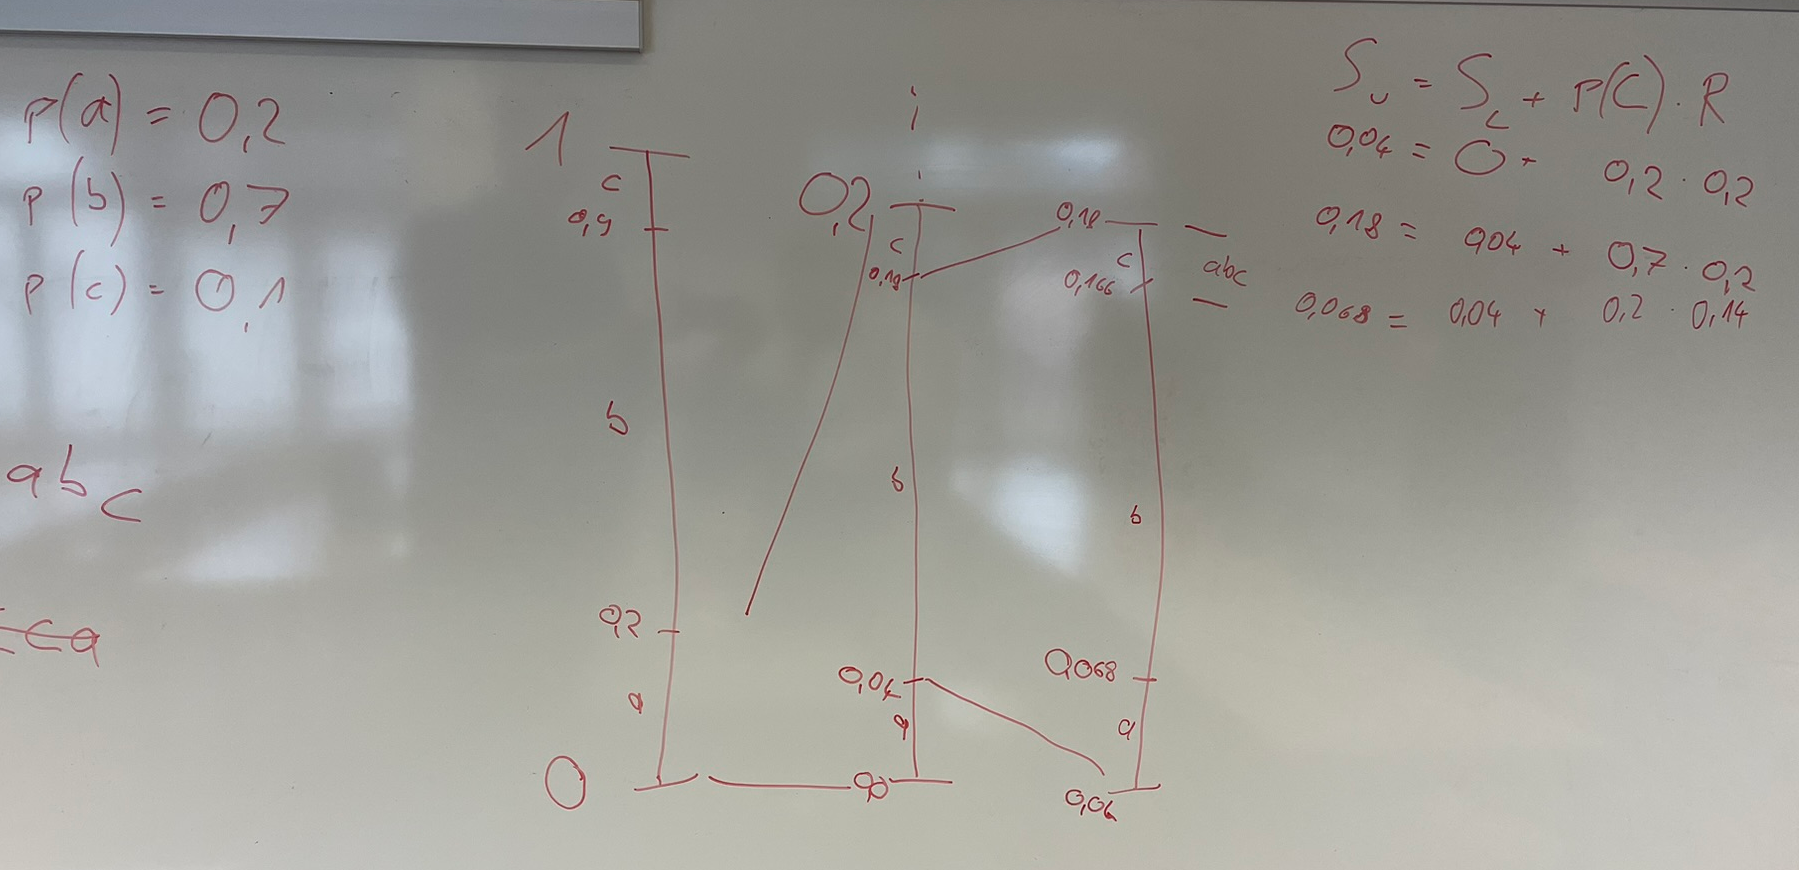 p(a) = 0,2
p(b) = 0,7
p(c) = 0,1
abc
ca
1
c
0,9
b
0,2
a
0
0,2
c
0,18
b
0,04
a
0,0
0,18
c
0,166
b
0,068
a
0,04
abc
S_U = S_L + P(C) · R
0,04 = 0 + 0,2 · 0,2
0,18 = 0,04 + 0,7 · 0,2
0,068 = 0,04 + 0,2 · 0,14